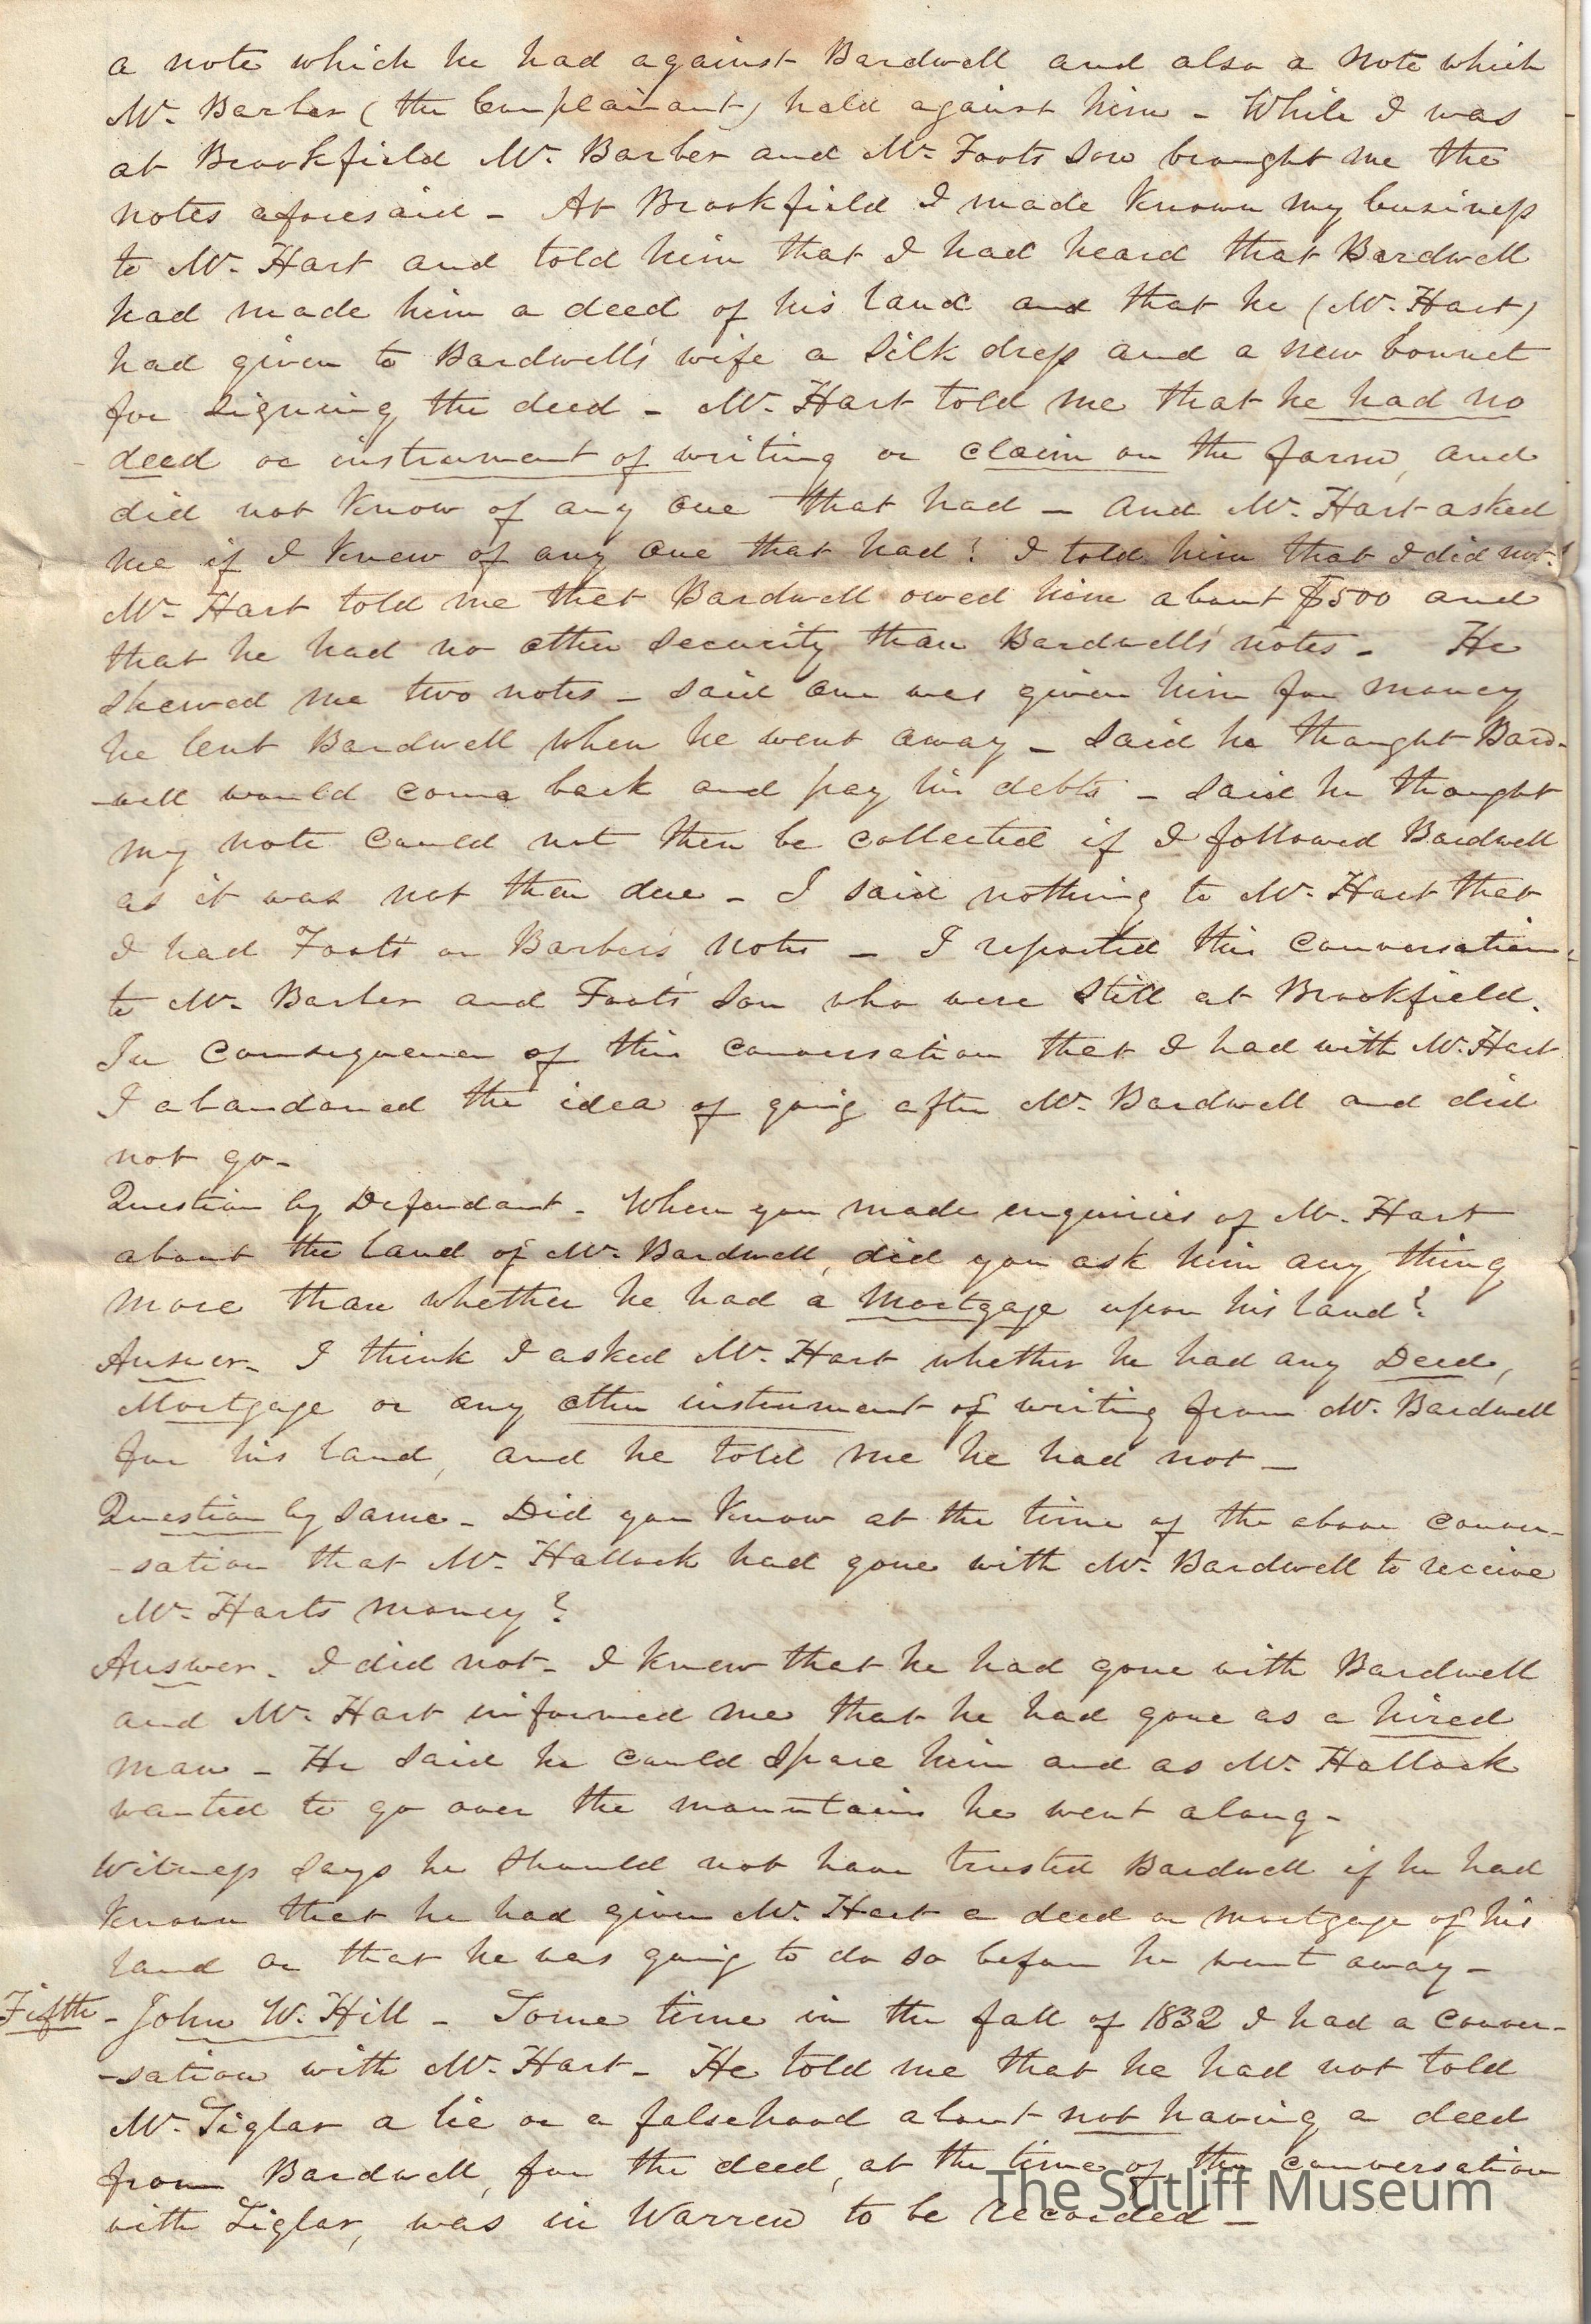 a note which he had against Bardwell and also a note which
Mr. Barber (the Complainant) held against him - While I was
at Brookfield Mr. Barber and Mr. Foots son brought me the
notes aforesaid - At Brookfield I made known my business
to Mr. Hart and told him that I had heard that Bardwell
had made him a deed of his land and that he (Mr. Hart)
had given to Bardwell's wife a silk dress and a new bonnet
for signing the deed - Mr. Hart told me that he had no
deed or instrument of writing or claim on the farm, and
did not know of any one that had - and Mr. Hart asked
me if I knew of any one that had? I told him that I did not.
Mr. Hart told me that Bardwell owed him about $500 and
that he had no other security than Bardwells' notes - He
shewed me two notes - said one was given him for money
he lent Bardwell when he went away - said he thought Bard-
-well would come back and pay his debts - said he thought
my note could not then be collected if I followed Bardwell
as it was not then due - I said nothing to Mr. Hart that
I had Foots' or Barbers' notes - I reported this conversation
to Mr. Barber and Foots' son who were still at Brookfield.
In consequence of this conversation that I had with Mr. Hart
I abandoned the idea of going after Mr. Bardwell and did
not go -
Question by Defendant - When you made enquiries of Mr. Hart
about the land of Mr. Bardwell, did you ask him any thing
more than whether he had a Mortgage upon his land?
Answer - I think I asked Mr. Hart whether he had any Deed,
Mortgage or any other instrument of writing from Mr. Bardwell
for his land, and he told me he had not -
Question by same - Did you know at the time of the above conver-
-sation that Mr. Hallock had gone with Mr. Bardwell to receive
Mr. Harts money?
Answer - I did not - I knew that he had gone with Bardwell
and Mr. Hart informed me that he had gone as a hired
man - He said he could spare him and as Mr. Hallock
wanted to go over the mountains he went along -
Witness says he should not have trusted Bardwell if he had
known that he had given Mr. Hart a deed or mortgage of his
land or that he was going to do so before he went away -
Fifth - John W. Hill - Some time in the fall of 1832 I had a conver-
-sation with Mr. Hart - He told me that he had not told
Mr. Siglar a lie or a falsehood about not having a deed
from Bardwell, for the deed, at the time of the conversation
with Siglar, was in Warren to be recorded -
The Sutliff Museum